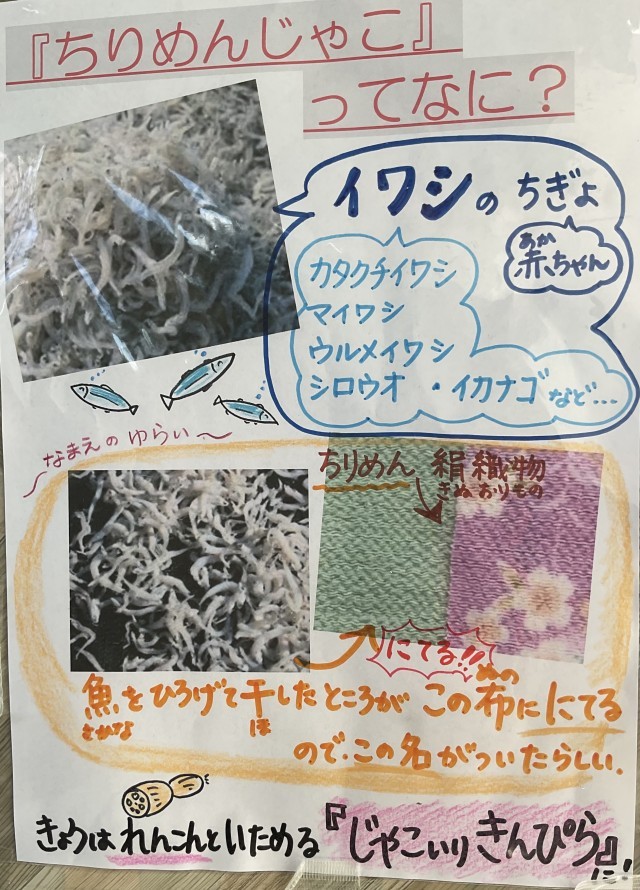 『ちりめんじゃこ』
ってなに？
イワシの ちぎょ
あか
赤ちゃん
カタクチイワシ
マイワシ
ウルメイワシ
シロウオ ・イカナゴ など…
なまえの ゆらい〜
ちりめん 絹織物
きぬ おりもの
にてる!!
魚をひろげて干したところが この布ににてる
さかな ほ ぬの
ので、この名がついたらしい。
きょうは れんこんといためる 『じゃこいりきんぴら』に!